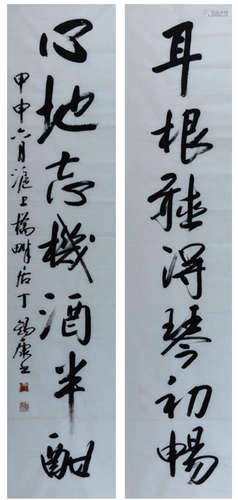 耳根聽得琴初暢
心地忘機酒半酣
甲申六月滬上橋畔居丁錫康書